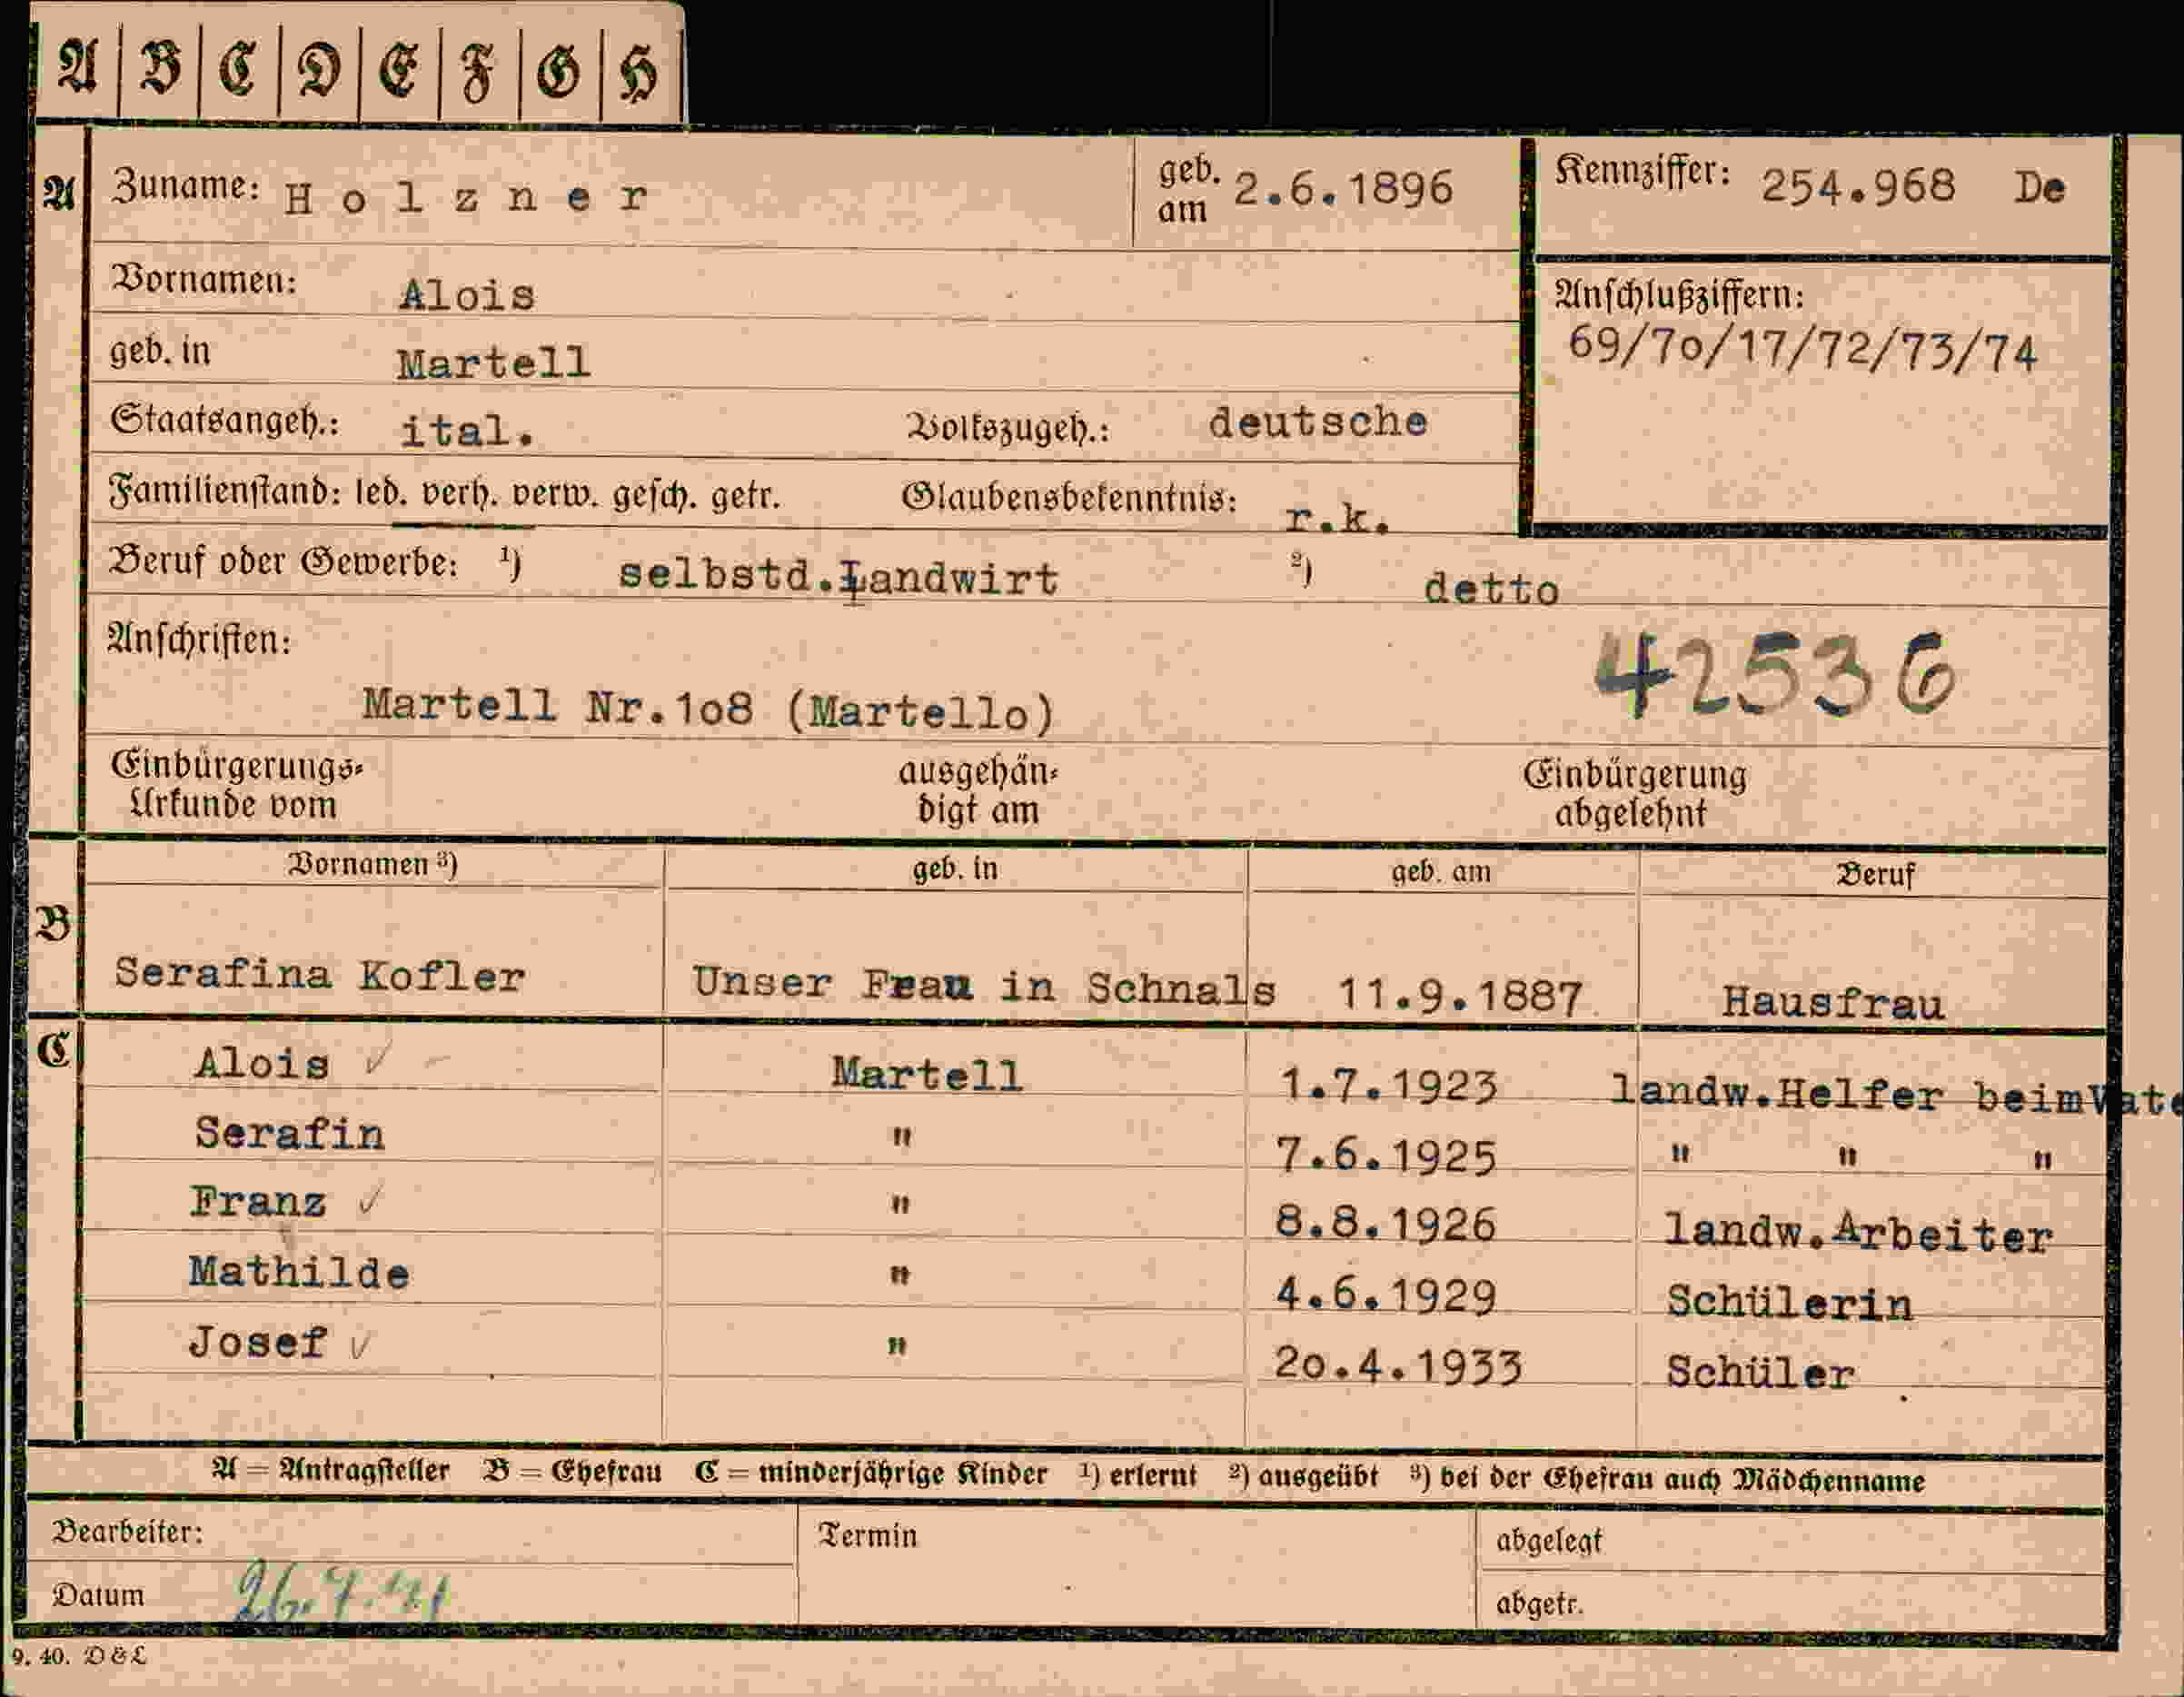 A B C D E F G H
A Zuname: Holzner geb. am 2.6.1896 Kennziffer: 254.968 De
Vornamen: Alois
Anschlußziffern:
69/7o/17/72/73/74
geb. in Martell
Staatsangeh.: ital. Volkszugeh.: deutsche
Familienstand: led. verh. verw. gesch. getr. Glaubensbekenntnis: r.k.
Beruf oder Gewerbe: ¹) selbstd.Landwirt ²) detto
Anschriften:
42536
Martell Nr.1o8 (Martello)
Einbürgerungs= ausgehän= Einbürgerung
Urkunde vom digt am abgelehnt
Vornamen ³) geb. in geb. am Beruf
B
Serafina Kofler Unser Frau in Schnals 11.9.1887 Hausfrau
C Alois ✓ Martell 1.7.1923 landw.Helfer beimVate
Serafin " 7.6.1925 " " "
Franz ✓ " 8.8.1926 landw.Arbeiter
Mathilde " 4.6.1929 Schülerin
Josef ✓ " 2o.4.1933 Schüler
A = Antragsteller B = Ehefrau C = minderjährige Kinder ¹) erlernt ²) ausgeübt ³) bei der Ehefrau auch Mädchenname
Bearbeiter: Termin abgelegt
Datum 26.7.41 abgetr.
9. 40. D & L